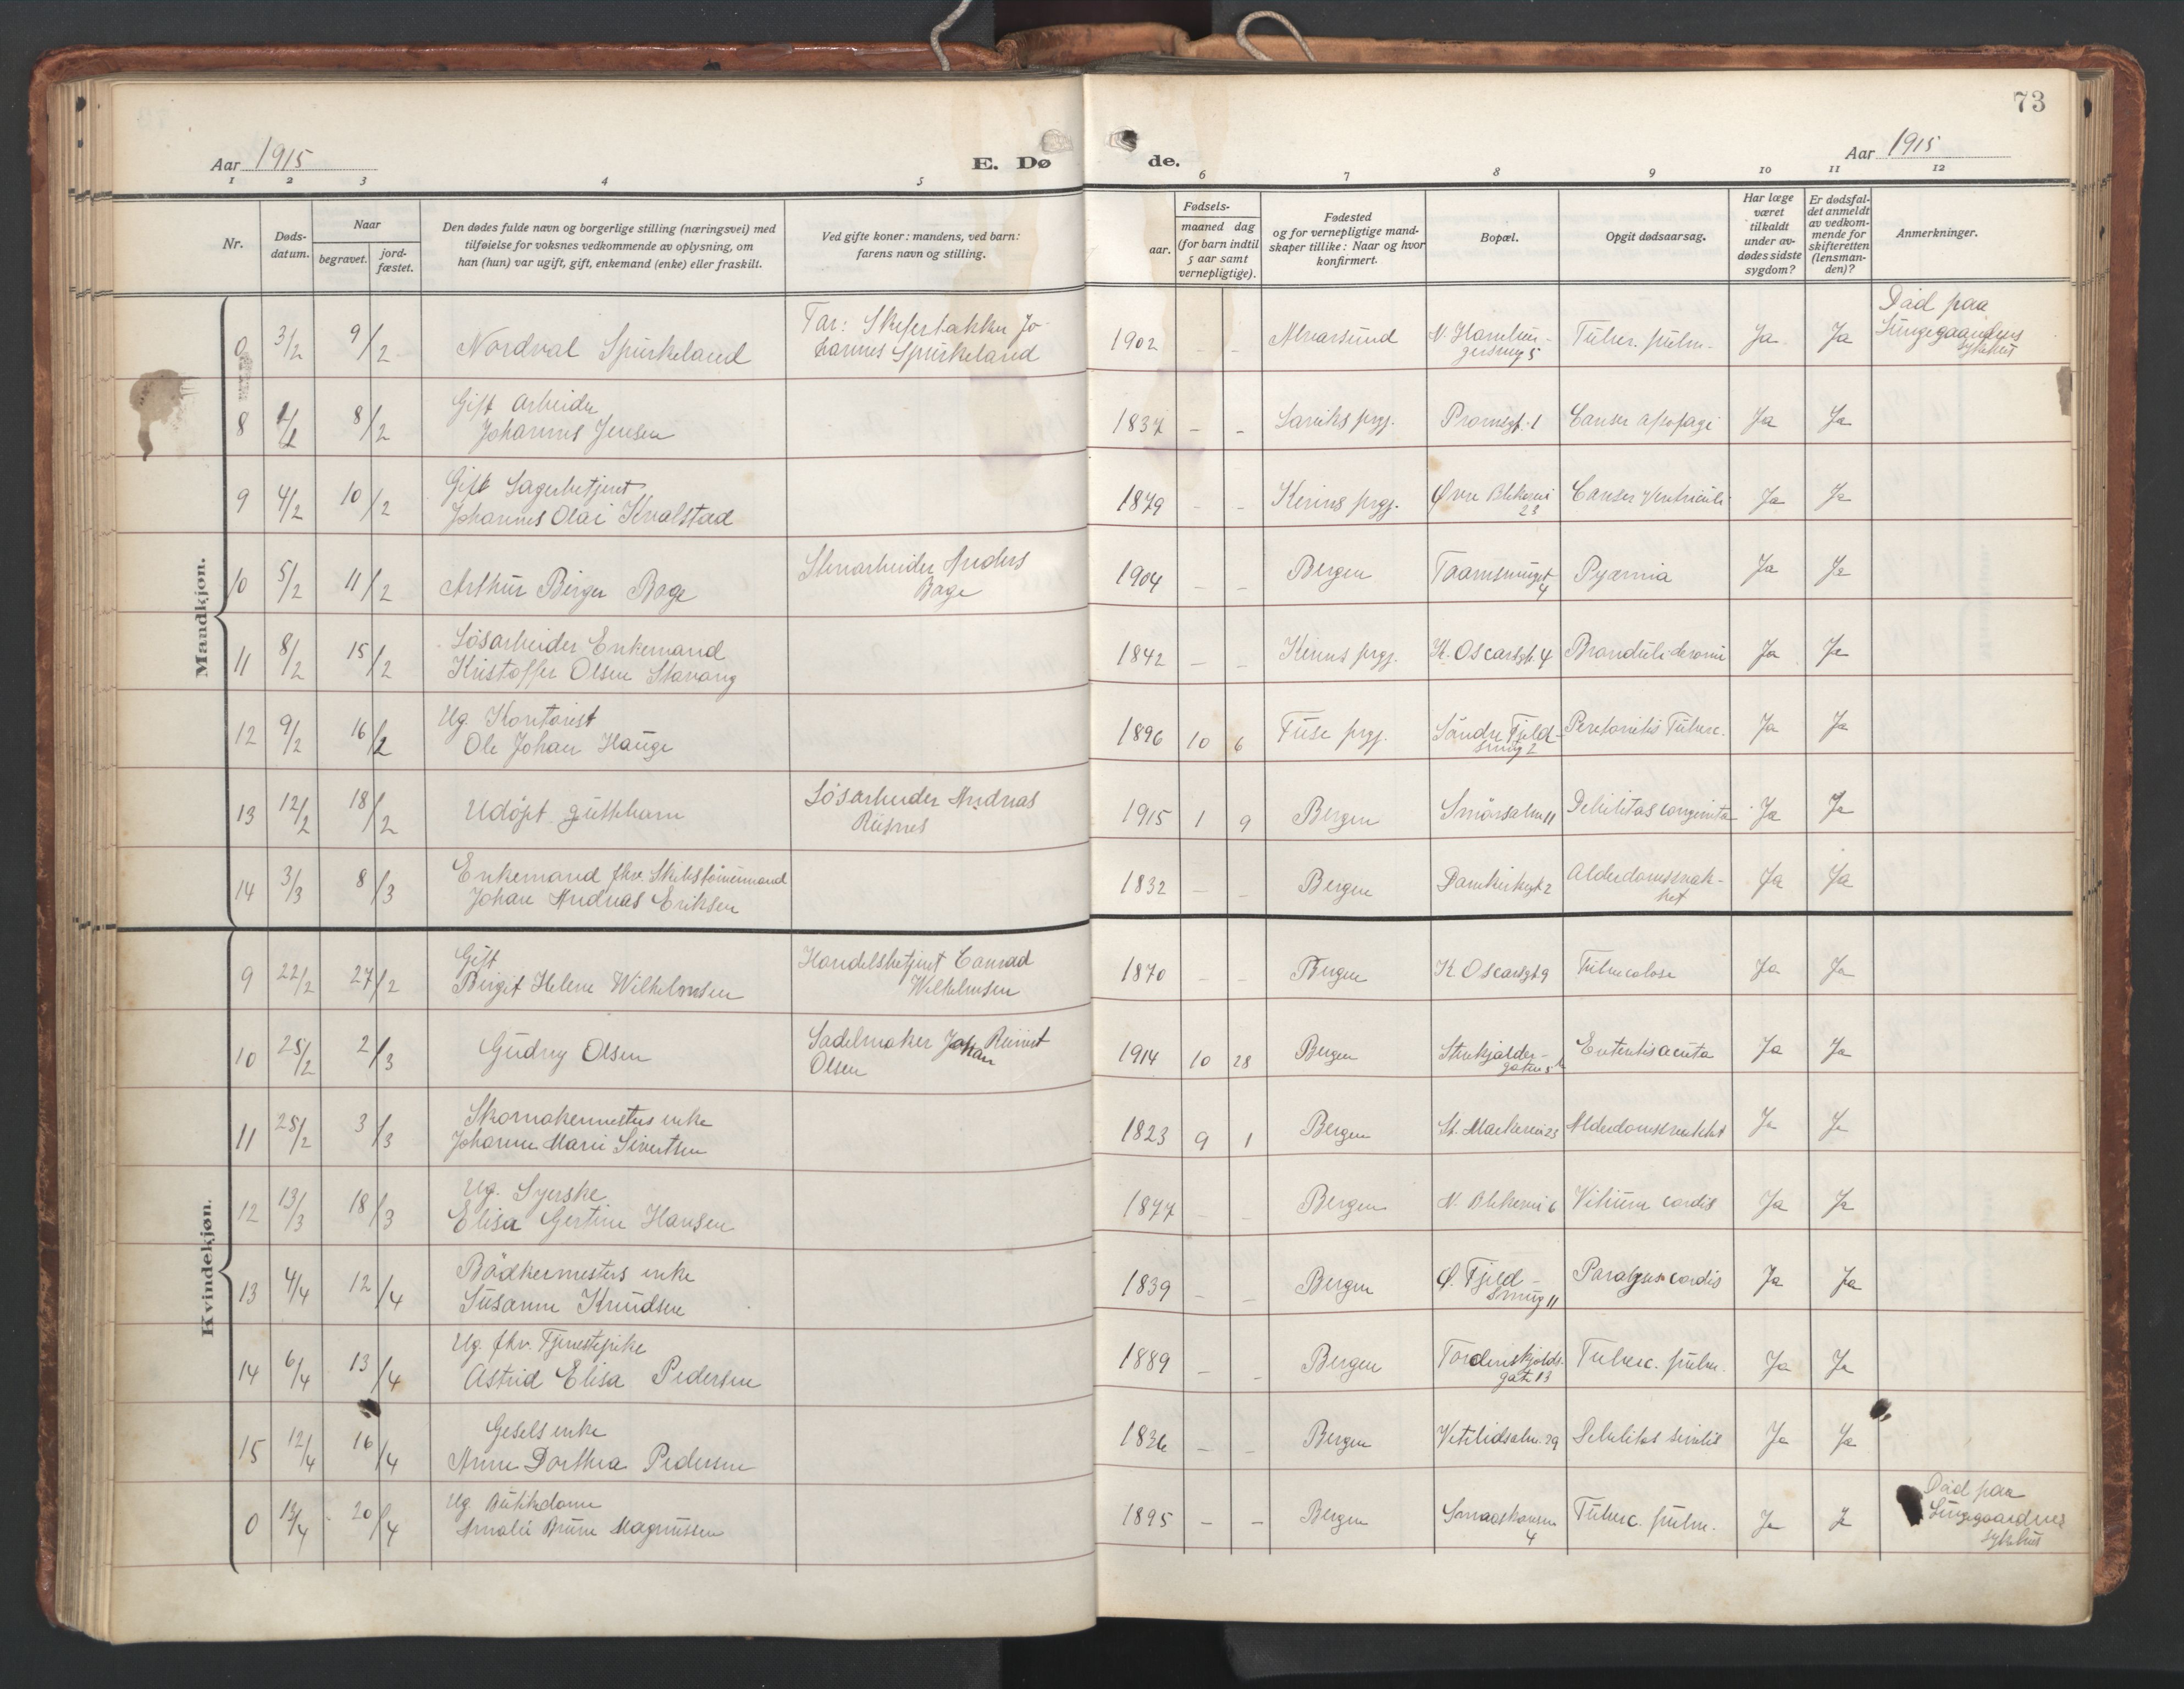 73
Aar 1915
E. Dø
de.
Aar 1915
1 2 3 4 5 6 7 8 9 10 11 12
Nr.
Døds-
datum.
Naar
begravet.
jord-
fæstet.
Den dødes fulde navn og borgerlige stilling (næringsvei) med
tilføielse for voksnes vedkommende av oplysning, om
han (hun) var ugift, gift, enkemand (enke) eller fraskilt.
Ved gifte koner: mandens, ved barn:
farens navn og stilling.
Fødsels-
aar.
maaned dag
(for barn indtil
5 aar samt
vernepligtige).
Fødested
og for vernepligtige mand-
skaper tillike: Naar og hvor
konfirmert.
Bopæl.
Opgit dødsaarsag.
Har læge
været
tilkaldt
under av-
dødes sidste
sygdom?
Er dødsfal-
det anmeldt
av vedkom-
mende for
skifteretten
(lensman-
den)?
Anmerkninger.
Mandkjøn.
0 3/2 9/2 Nordval Spurkeland
Far: Jo-
hannes Spurkeland
1902 - - Alvarsund
Tuber. pulm. Ja Ja
Död paa
Lungegaardens
sykehus
8 8/2 Gift Arbeider
Johannes Jensen
1837 - - prgj. Promsgt. 1 Ja Ja
9 4/2 10/2 Gift Lagerbetjent
Johannes Olai Kvalstad
1879 - - Kinns prgj. Øvre Blekevei
23
Cancer Ventriculi Ja Ja
10 5/2 11/2 Arthur Birger Bage
Stenarbeider Anders
Bage
1904 - - Bergen
4
Pyæmia Ja Ja
11 8/2 15/2 Lösarbeider Enkemand
Kristoffer Olsen Stavang
1842 - - Kinns prgj. K. Oscarsgt. 4 Ja Ja
12 9/2 16/2 Ug. Kontorist
Ole Johan Hauge
1896 10 6 Fuse prgj. Söndre Fjeld-
smug 2
Peretonitis Tuberc. Ja Ja
13 12/2 18/2 Udöpt guttebarn
Lösarbeider Andreas
Risnes
1915 1 9 Bergen Smörsalm 11 Debilitas congenita Ja Ja
14 3/3 8/3 Enkemand fhv. Skibstömmermand
Johan Andreas Eriksen
1832 - - Bergen Domkirkegt 2 Alderdomssvak-
het
Ja Ja
Kvindekjøn.
9 22/2 27/2 Gift
Birgit Helene Wilhelmsen
Handelsbetjent Conrad
Wilhelmsen
1870 - - Bergen K Oscarsgt 9 Tuberculose Ja Ja
10 25/2 2/3 Gudny Olsen
Sadelmaker Johan
Olsen
1914 10 28 Bergen Stenkjelder-
gaten 5
Enteritis acuta Ja Ja
11 25/2 3/3 Skomakermesters enke
Johanne Marie Sivertsen
1823 9 1 Bergen St. Markevei 23 Alderdomssvakhet Ja Ja
12 13/3 18/3 Ug. Syerske
Elisa Gertine Hansen
1877 - - Bergen N. Blekevei 6 Vitium cordis Ja Ja
13 4/4 12/4 Bödkermesters enke
Susanne Knudsen
1839 - - Bergen Ø. Fjeld-
smug 11
Paralysis cordis Ja Ja
14 6/4 13/4 Ug. fhv. Tjenestepike
Astrid Elisa Pedersen
1889 - - Bergen Tordenskjolds-
gate 13
Tuberc. pulm. Ja Ja
15 12/4 16/4 Gesels enke
Anne Dorthea Pedersen
1836 - - Bergen Vetrlidsalm. 29 Debilitas senilis Ja Ja
0 13/4 20/4 Ug. Butikdame
Amalie Brun Magnussen
1895 - - Bergen
4
Tuberc. pulm. Ja Ja
Död paa
Lungegaardens
sykehus